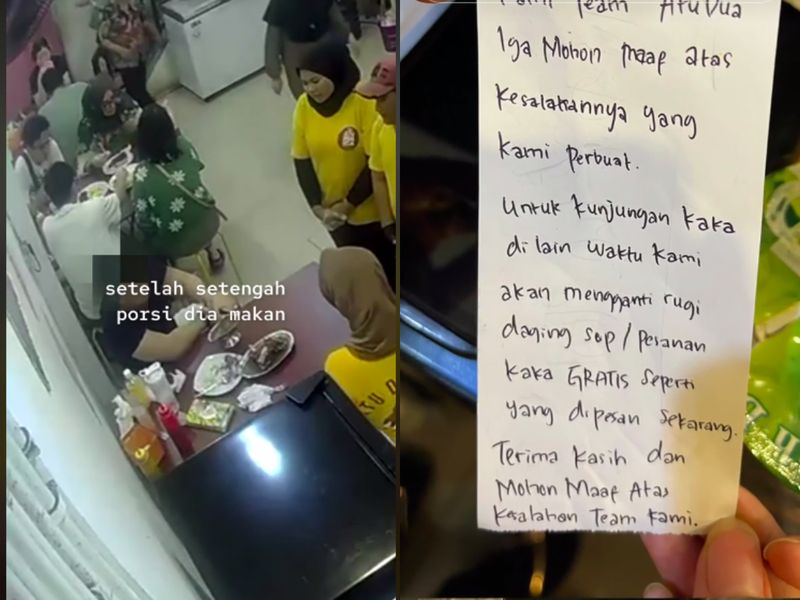 setelah setengah
porsi dia makan
Team
Iga Mohon Maaf atas
Kesalahannya yang
Kami Perbuat.
Untuk kunjungan kaka
di lain waktu kami
akan mengganti rugi
daging sop / Pesanan
kaka GRATIS seperti
yang dipesan sekarang.
Terima kasih dan
Mohon Maaf Atas
Kesalahan Team Kami.